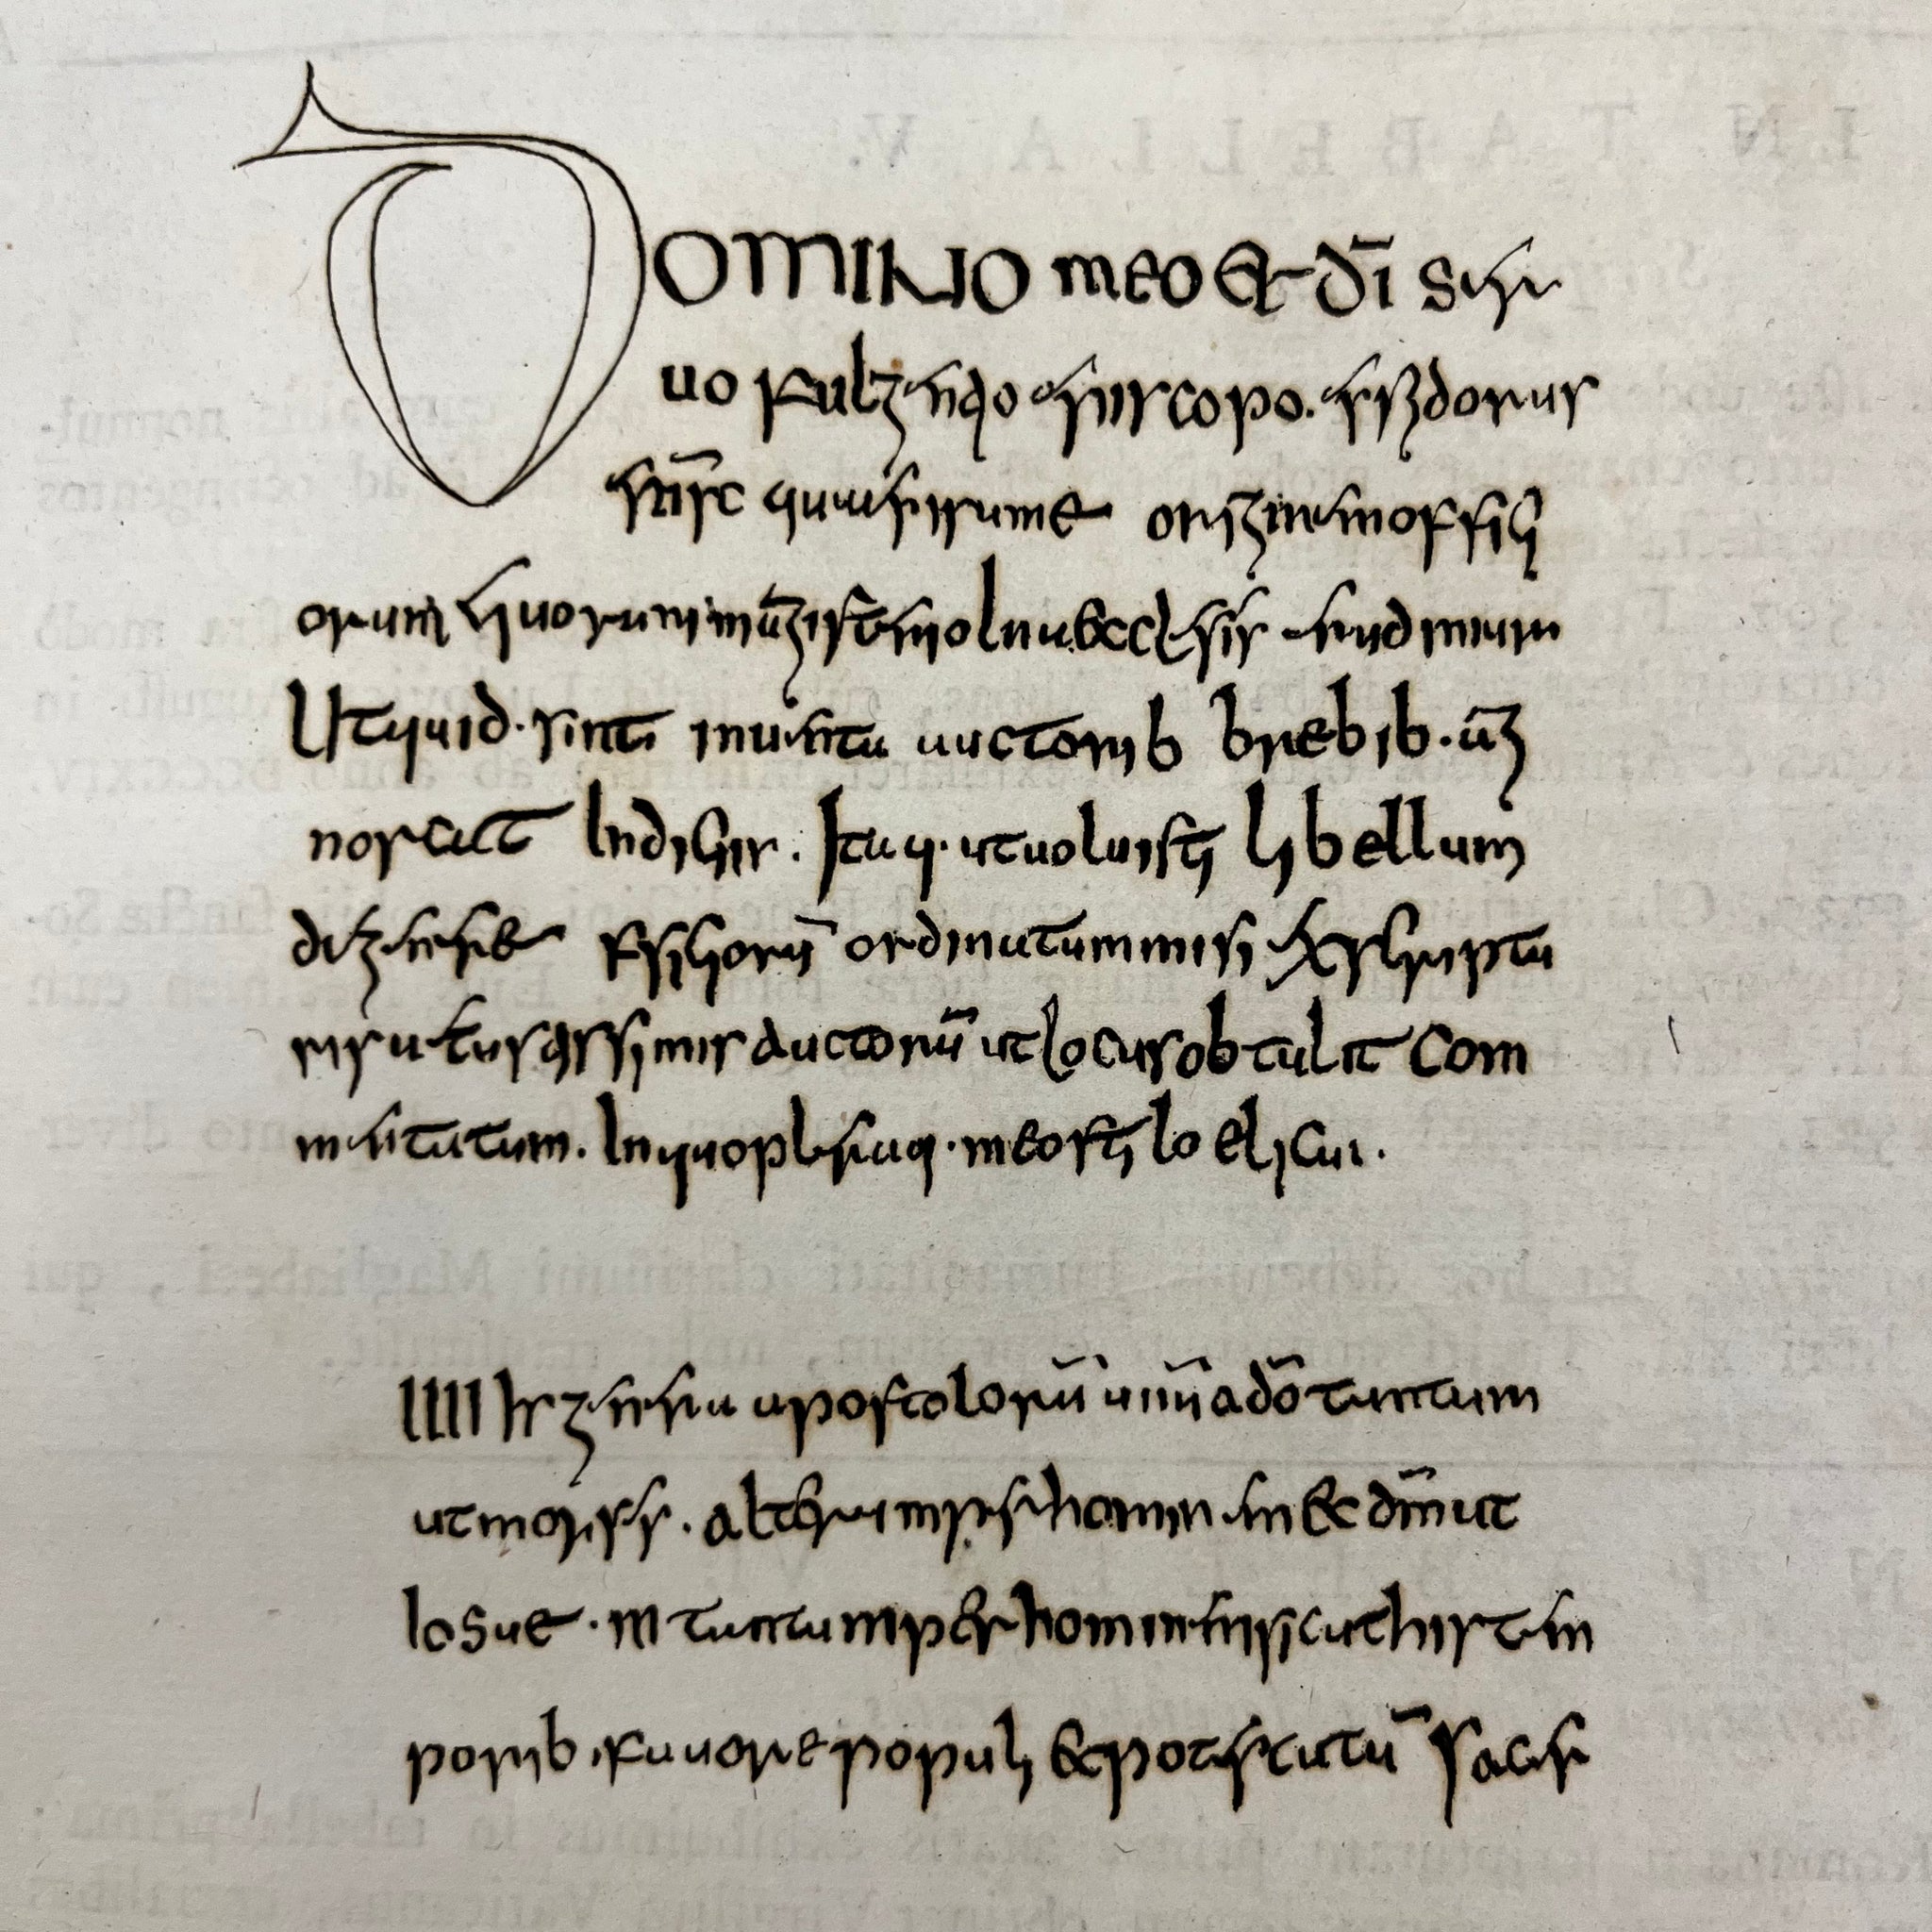 DOMINO meo et dī Ser
uo fulgentio episcopo. esidorus
epīsc quaerisame origine offici
orum quorum magisterio In ecclesiis erudimur
Ut quid. sint inuenta auctorib brebib. āg
noscat Indiciis. Itaq. ut uoluisti libellum
de genere officiorū ordinatum misi exscriptu
ris uetustissimis auctorū ut locus obtulit com
mentatum. In quo pleraq. meo stilo elicui.
IIII Hr genera apostolorū unū a dō tantum
ut moises. alter per homin em et dm̄ ut
Iosue. III tantum per hominem sicut his tem
porib. fauore populi et potestatū sacer